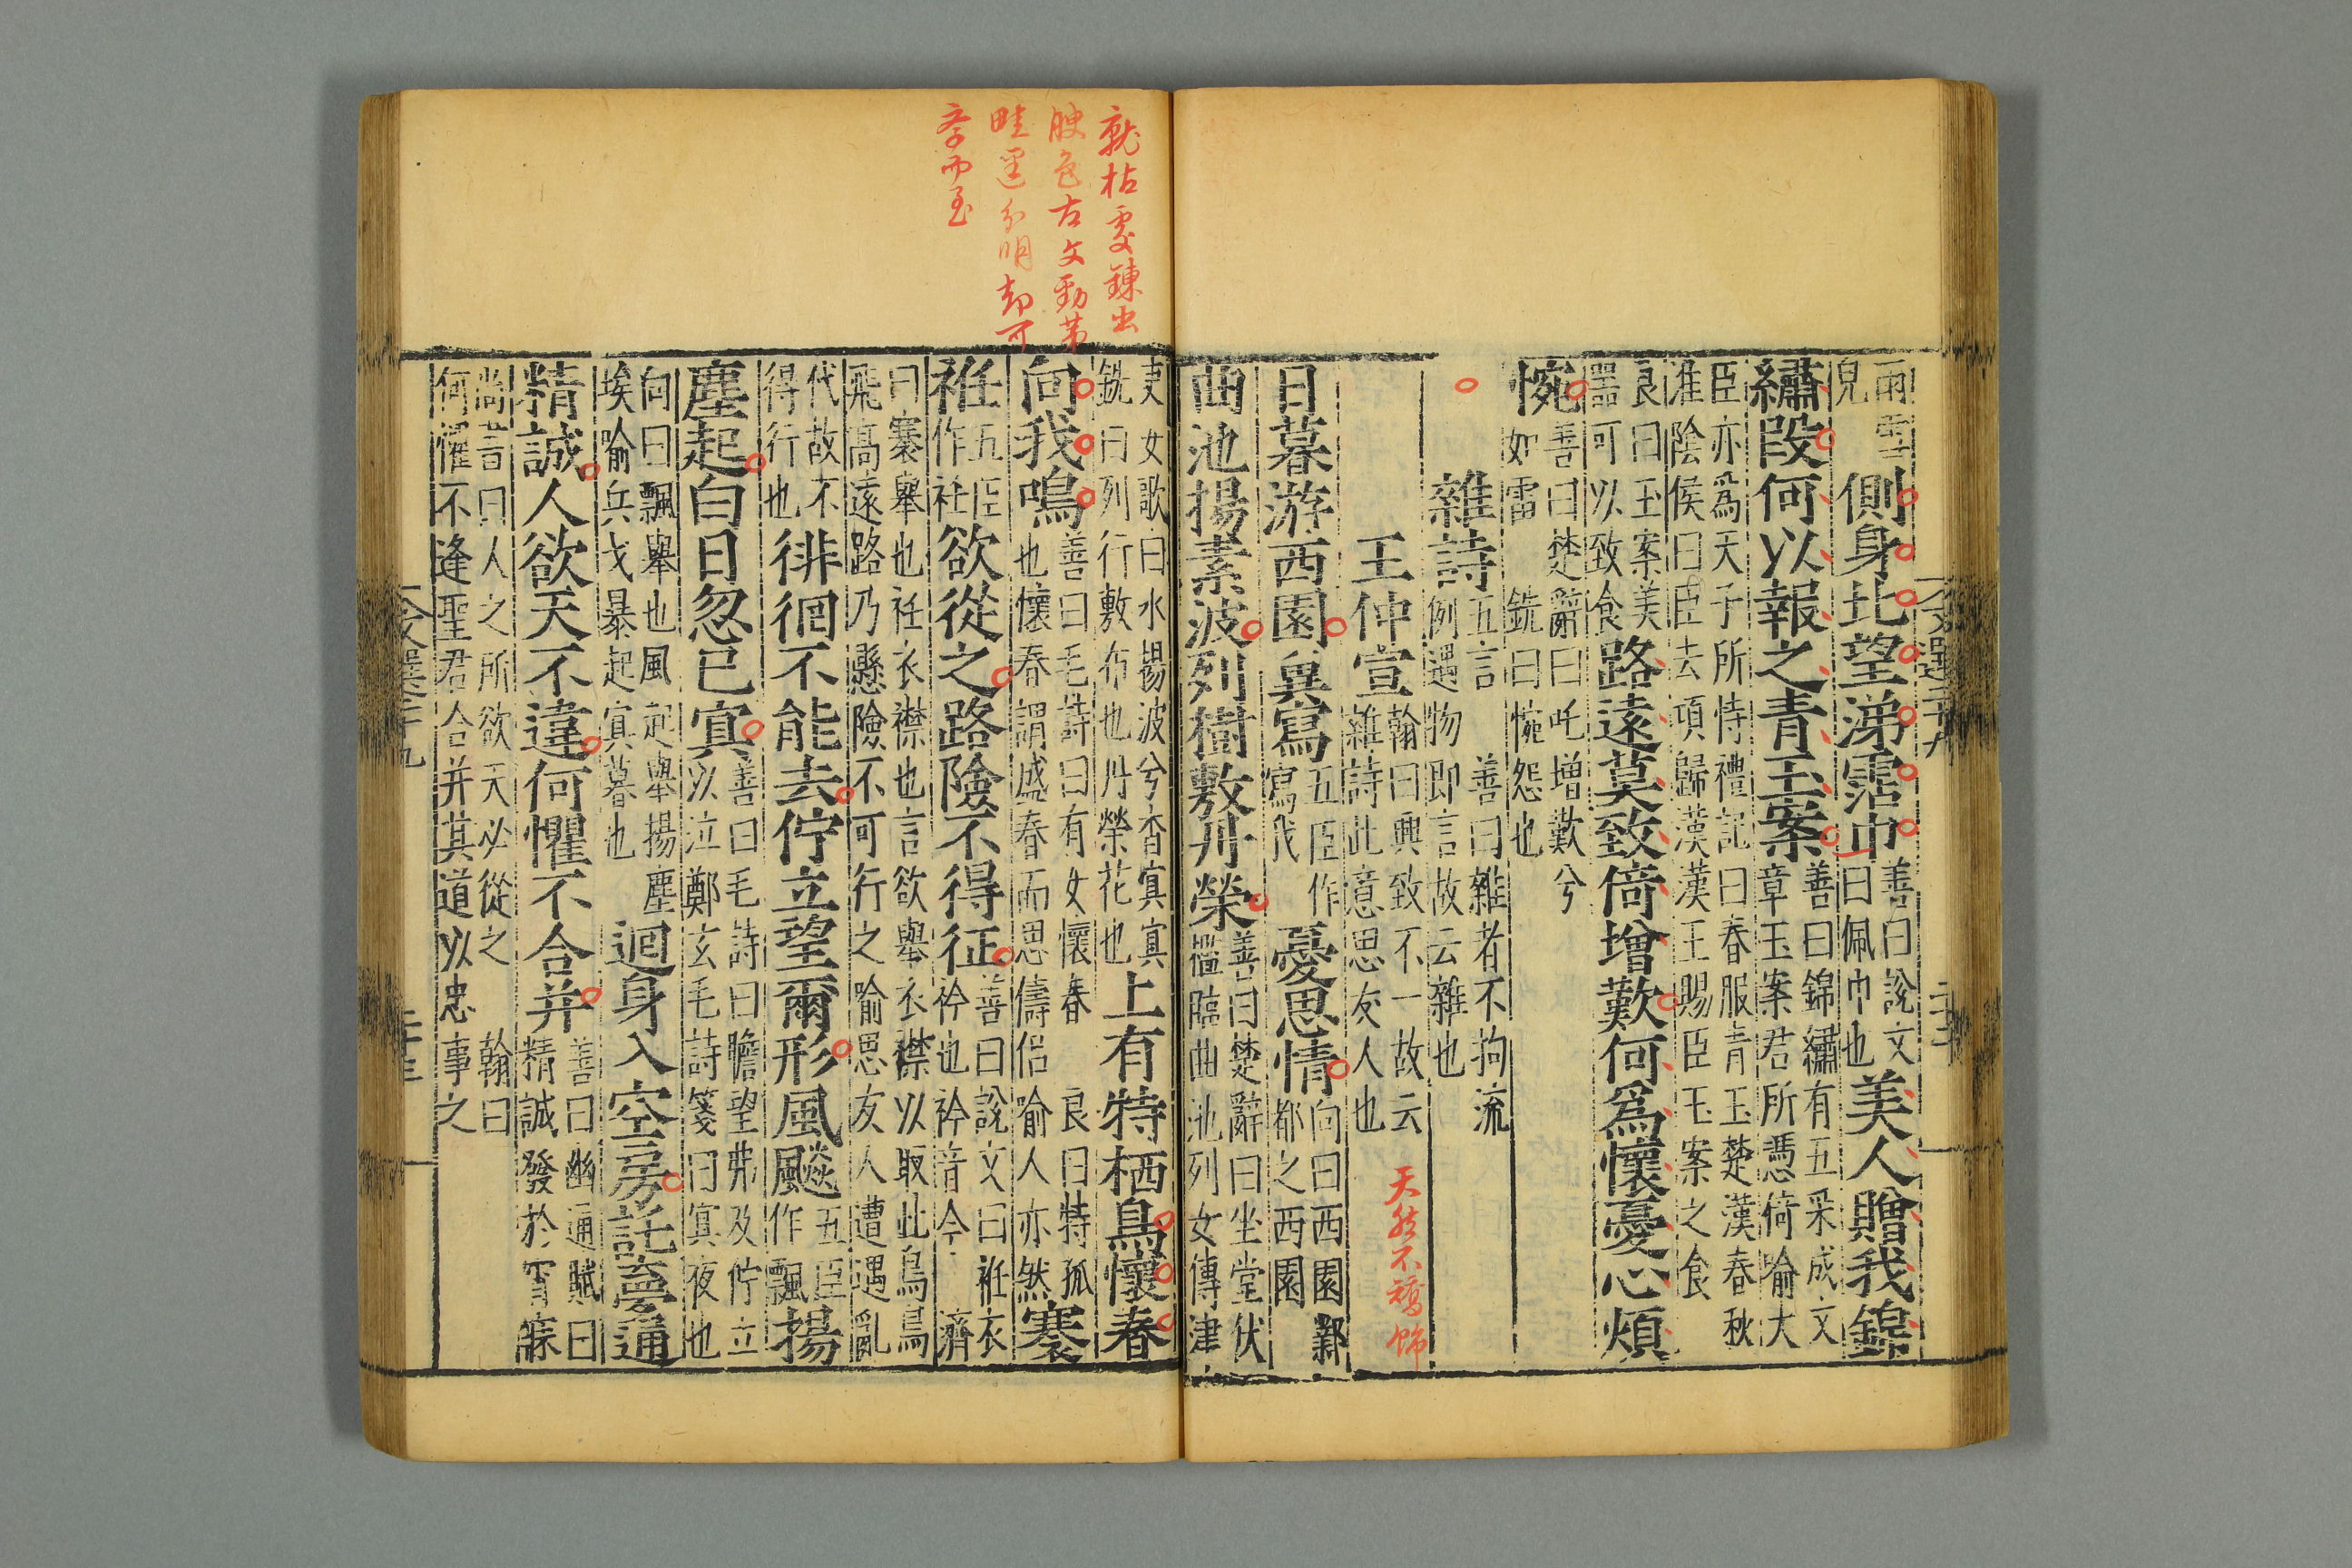 雨雪
皃
側身北望涕霑巾
善曰說文
曰佩巾也
美人贈我錦
繡段何以報之青玉案
善曰錦繡有五采成文
章玉案君所憑倚喻大
臣亦爲天子所恃禮記曰春服青玉楚漢春秋
淮陰侯曰臣去項歸漢漢王賜臣玉案之食
良曰玉案美
器可以致食
路遠莫致倚增歎何爲懷憂心煩
惋
善曰楚辭曰吒增歎兮
如雷
銑曰惋怨也
雜詩
五言
善曰雜者不拘流
例遇物即言故云雜也
王仲宣
翰曰興致不一故云
雜詩此意思友人也
天然不補飾
日暮游西園兾寫
五臣作
寫我
憂思情
向曰西園鄴
都之西園
曲池揚素波列樹敷丹榮
善曰楚辭曰坐堂伏
檻臨曲池列女傳津
吏女歌曰水揚波兮杳寘寘
銑曰列行敷布也丹榮花也
上有特栖鳥懷春
向我鳴
善曰毛詩曰有女懷春
也懷春謂盛春而思儔侶
良曰特孤
喻人亦然
褰
袵
五臣
作衽
欲從之路險不得征
善曰說文曰袵衣
衿也衿音今
濟
曰褰舉也衽衣襟也言欲舉衣襟以取此鳥鳥
飛高遠路乃懸險不可行之喻思友人遭遇亂
代故不
得行也
徘徊不能去佇立望爾形風飈
五臣
作飄
揚
塵起白日忽已寘
善曰毛詩曰瞻望弗及佇立
以泣鄭玄毛詩箋曰寘夜也
向曰飄舉也風起舉揚塵
埃喻兵戈暴起寘暮也
迴身入空房託夢通
精誠人欲天不違何懼不合并
善曰幽通賦曰
精誠發於宵寐
尚書曰人之所欲天必從之
翰曰
何懼不逢聖君合并其道以忠事之
就枯處鍊出
腴色古文勁苐
畦逕分明却可
孥而至
文選二十九
二十三